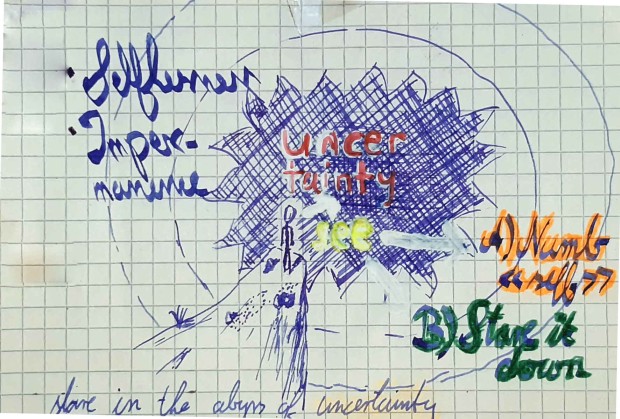 • Selflessness
• Imper-
manence
uncer
tainty
see
A) Numb
« self »
B) Stare it
down
stare in the abyss of uncertainty